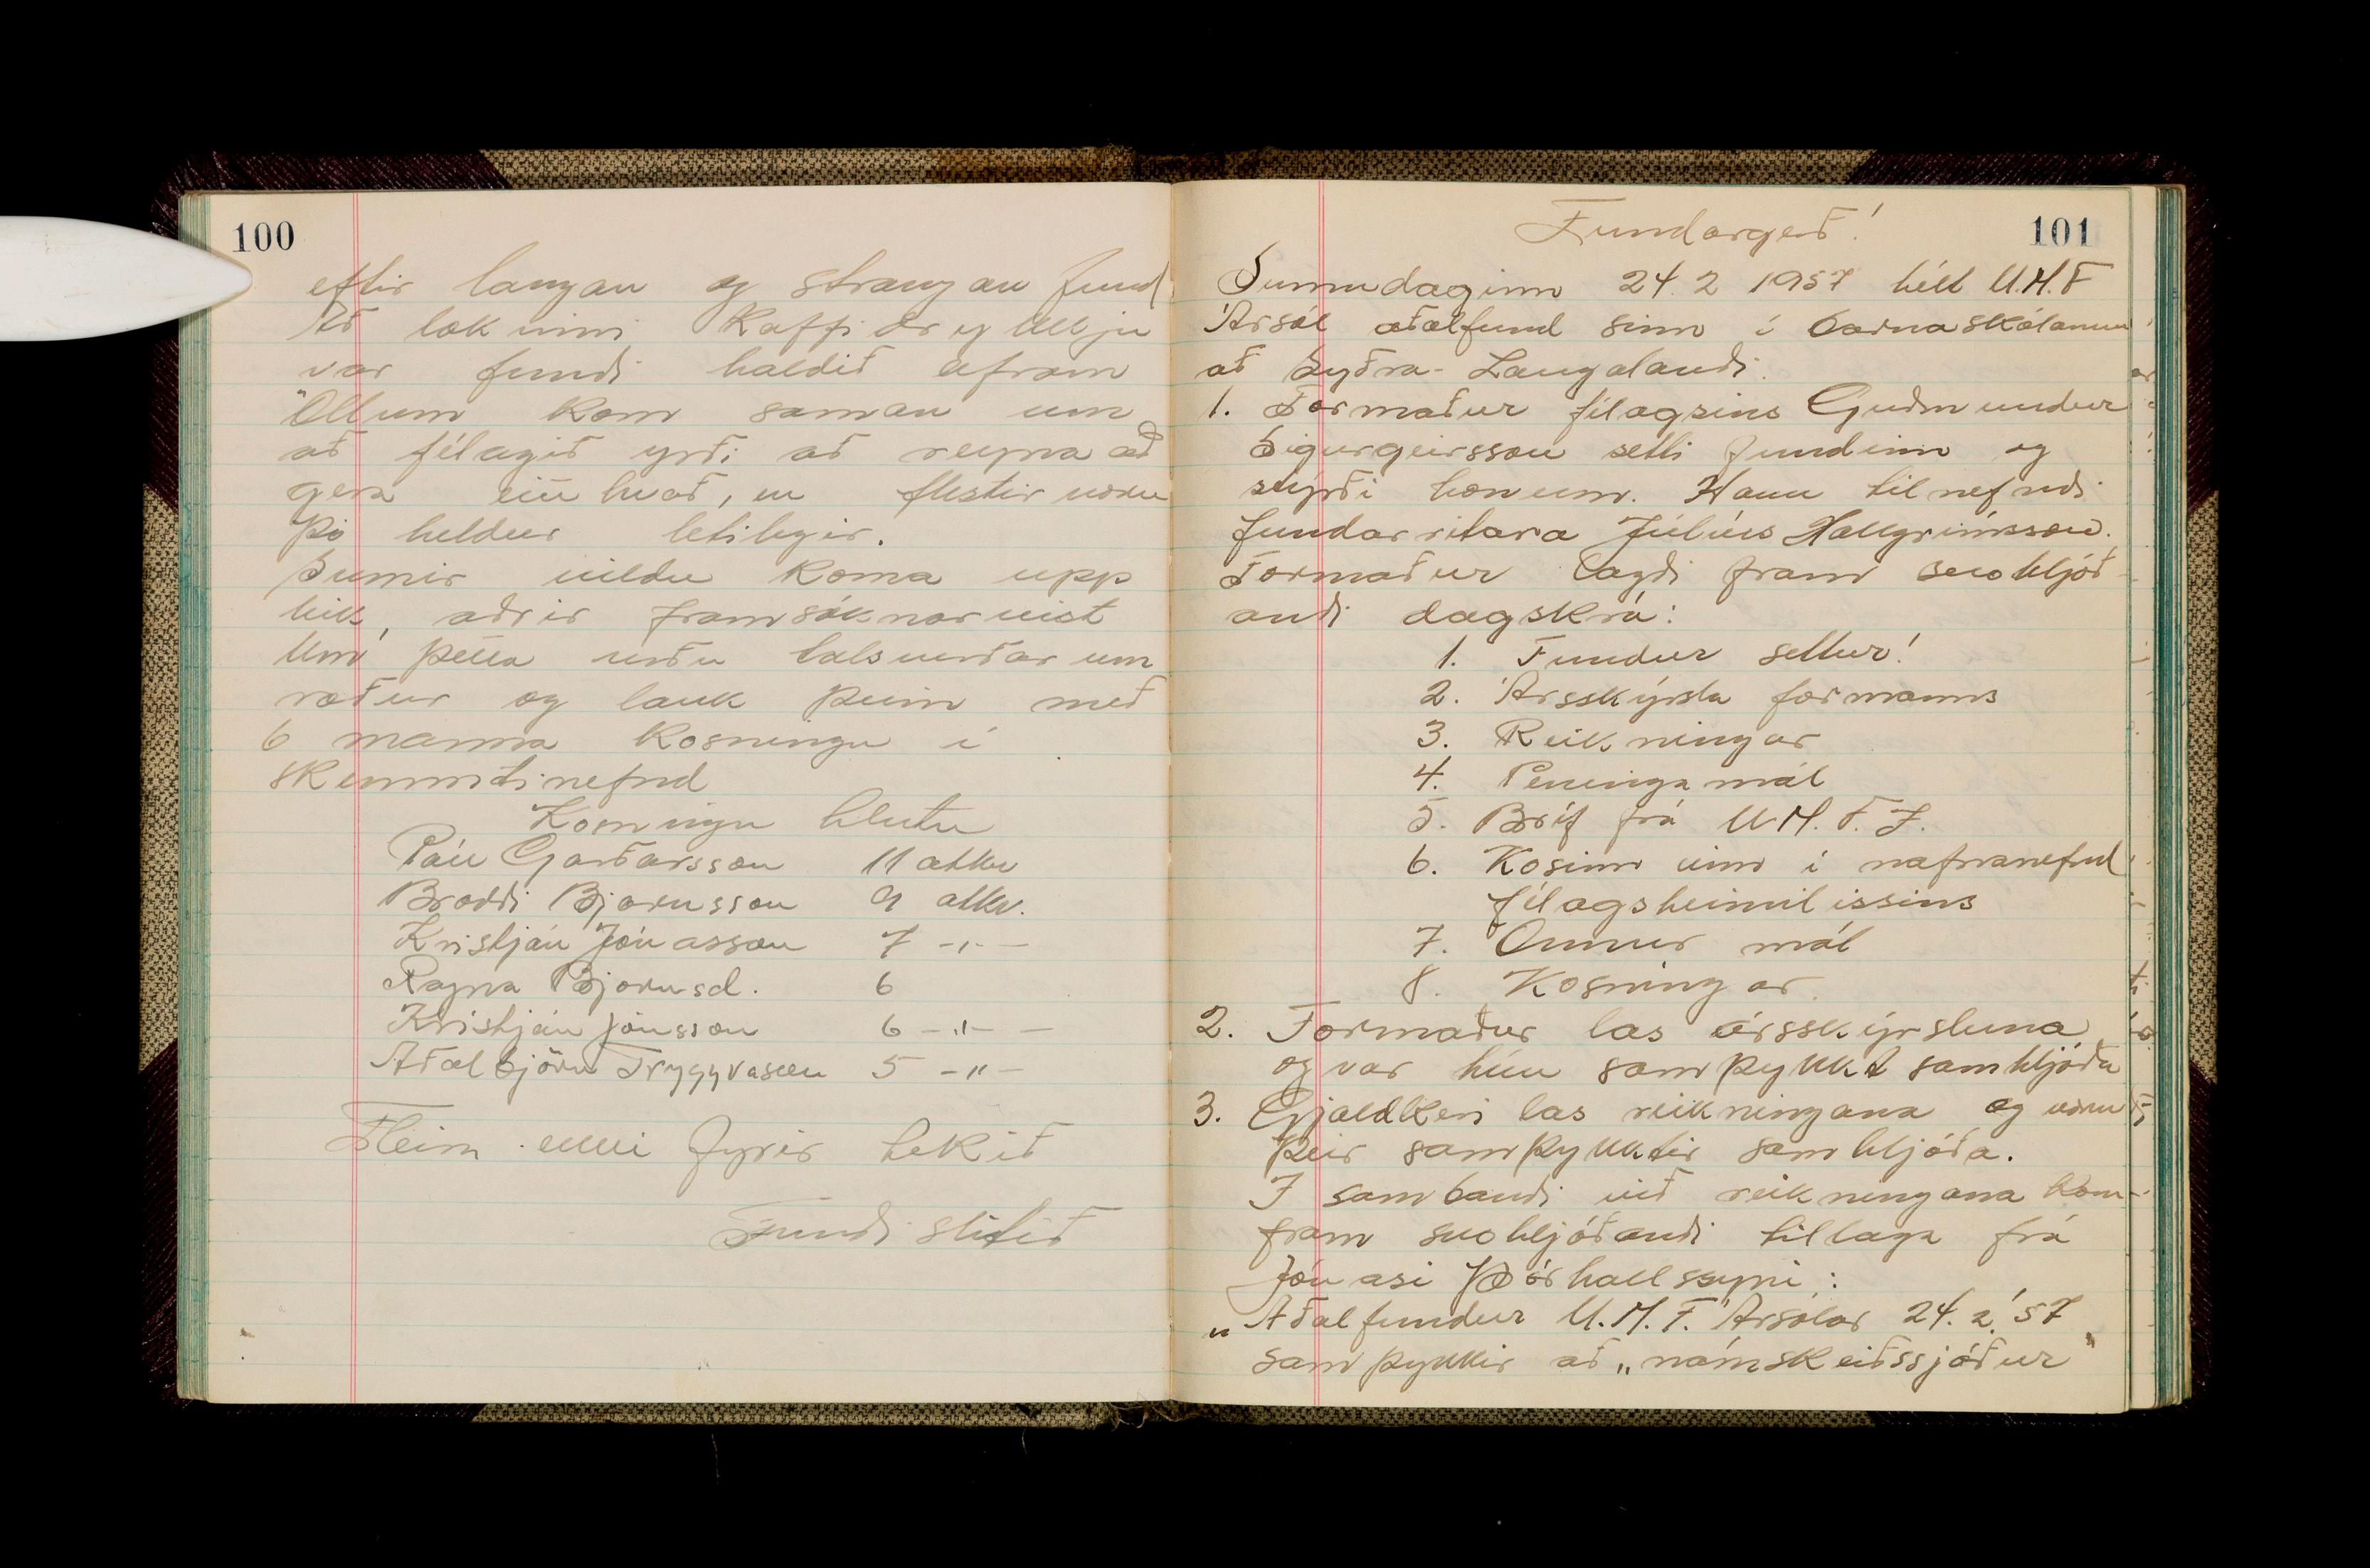 100
eftir langan og strangan fund
Að lokinni Kaffidrykkju
var fundi haldið áfram
Öllum kom saman um
að félagið yrði að reyna að
gera eitthvað, en flestir voru
þó heldur letilegir.
Sumir vildu koma upp
leik, aðrir framsóknarvist
Um þetta urðu talsverðar um
ræður og lauk þeim með
6 manna kosningu í
skemmtinefnd
Kosningu hlutu
Páll Garðarsson 11 atkv
Broddi Björnsson 9 atkv.
Kristján Jónasson 7 -"-
Ragna Björnsd. 6
Kristján Jónsson 6 -"-
Aðalbjörn Tryggvason 5 -"-
Fleira ekki fyrir tekið
Fundi slitið
101
Fundargerð!
Sunnudaginn 24.2 1957 hélt U.M.F
Ársól aðalfund sinn í barnaskólanum
að Syðra-Laugalandi.
1. Formaður félagsins Guðmundur
Sigurgeirsson setti fundinn og
stýrði honum. Hann tilnefndi
fundarritara Júlíus Hallgrímsson.
Formaður lagði fram svohljóð-
andi dagskrá:
1. Fundur settur!
2. Ársskýrsla formanns
3. Reikningar
4. Peningamál
5. Bréf frá U.M.F.Í.
6. Kosinn einn í nafnanefnd
félagsheimilissins
7. Önnur mál
8. Kosningar.
2. Formaður las ársskýrsluna
og var hún samþykkt samhljóða
3. Gjaldkeri las reikningana og voru
þeir samþykktir samhljóða.
Í sambandi við reikningana kom
fram svohljóðandi tillaga frá
Jónasi Þórhallssyni:
„Aðalfundur U.M.F. Ársólar 24.2.'57
samþykkir að „námskeiðssjóður"